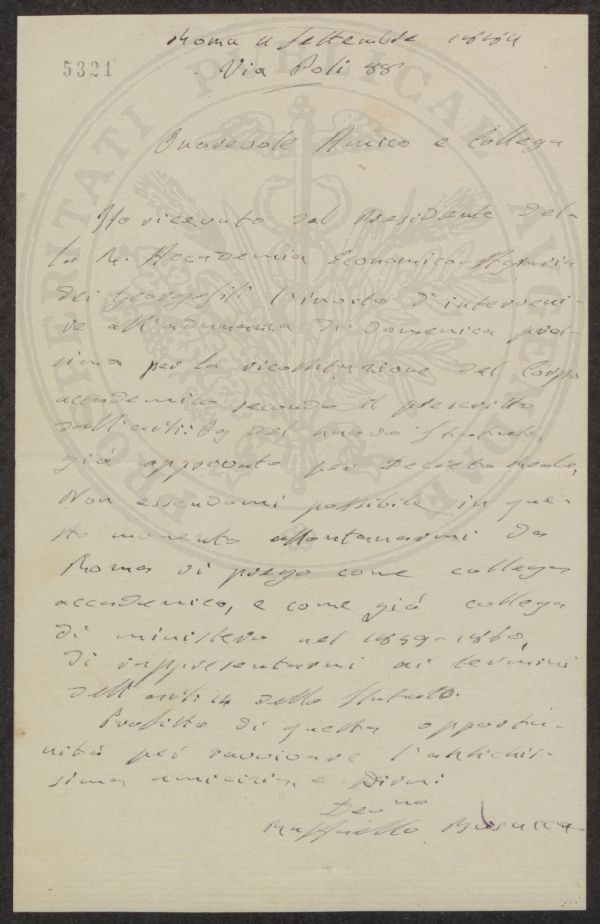 Roma 11 Settembre 1884
5321
Via Poli 88
Onorevole Amico e Collega
Ho ricevuto dal Presidente del-
la R. Accademia Economico-Agraria
dei Georgofili l'invito d'interveni-
re all'adunanza di Domenica pros-
sima per la ricostituzione del Corpo
accademico secondo il prescritto
dall'artic. del nuovo Statuto,
già approvato per Decreto Reale.
Non essendomi possibile in que-
sto momento allontanarmi da
Roma vi prego come collega
accademico, e come già collega
di ministero nel 1859-1860,
di rappresentarmi ai termini
dell'artic. 14 dello Statuto.
Profitto di questa opportu-
nità per ravvivare l'antichis-
sima amicizia, e Dirmi
Dev.mo
Raffaello Busacca
PROSPERITATI PUBLICAE AUGENDAE